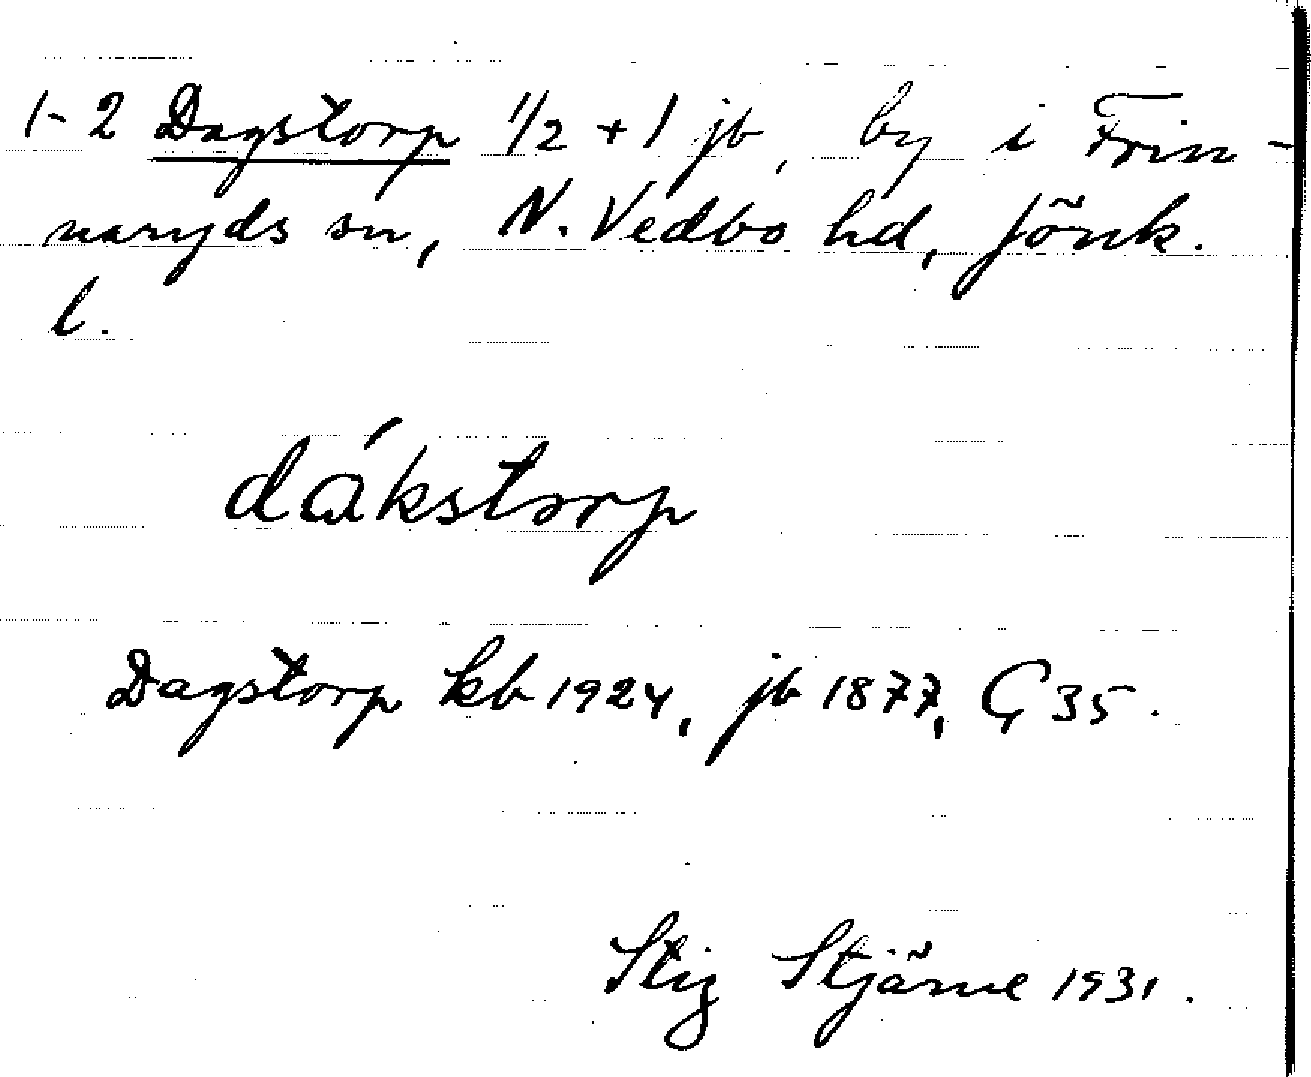 1-2 Dagstorp 1/2 + 1 jb, by i Frin-
naryds sn, N. Vedbo hd, Jönk.
l.
dákstorp
Dagstorp kb 1924, jb 1877, G 35.
Stig Stjärne 1931.